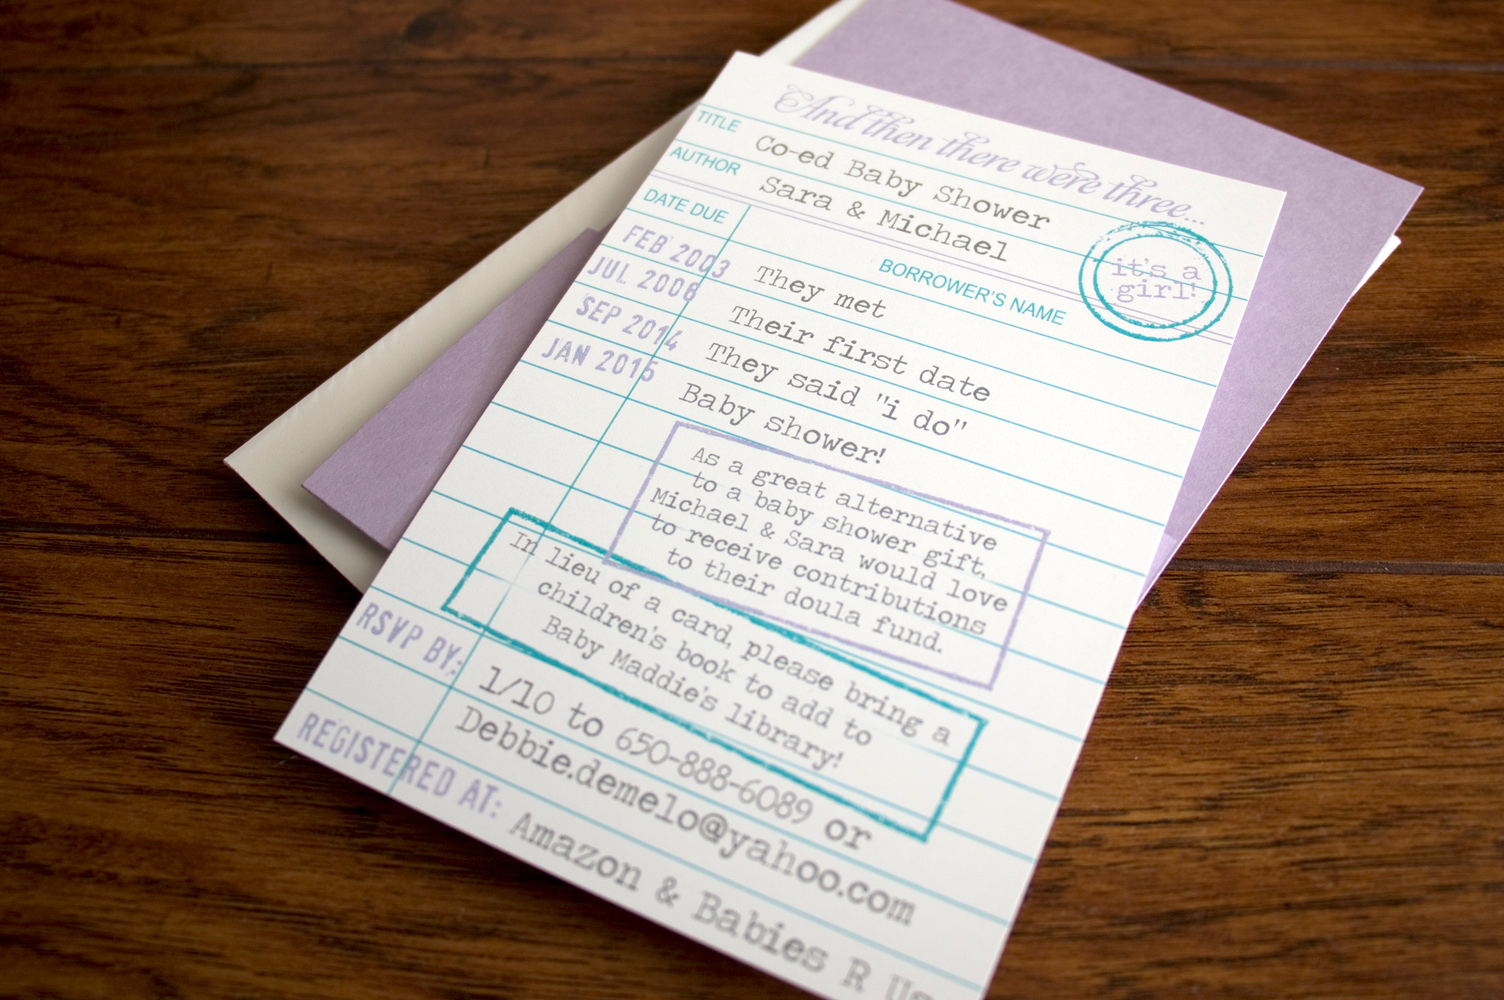 And then there were three...
TITLE Co-ed Baby Shower
AUTHOR Sara & Michael
it's a
girl!
DATE DUE BORROWER'S NAME
FEB 2003 They met
JUL 2006 Their first date
SEP 2014 They said "i do"
JAN 2015 Baby shower!
As a great alternative
to a baby shower gift,
Michael & Sara would love
to receive contributions
to their doula fund.
In lieu of a card, please bring a
children's book to add to
Baby Maddie's library!
RSVP BY: 1/10 to 650-888-6089 or
Debbie.demelo@yahoo.com
REGISTERED AT: Amazon & Babies R Us